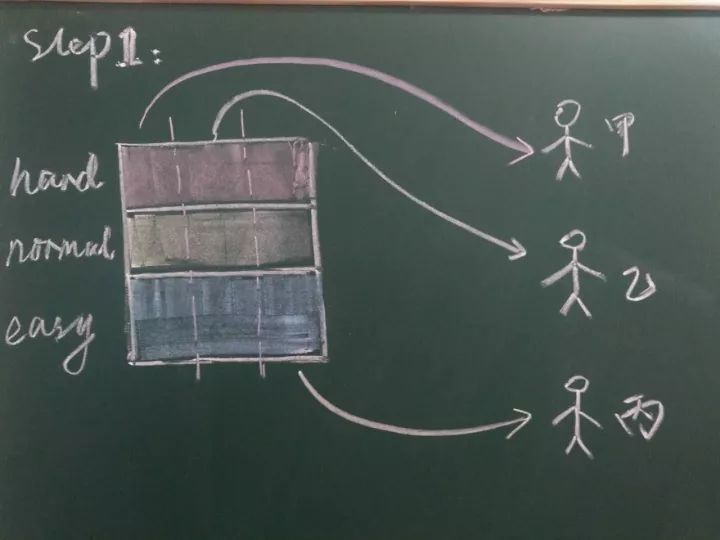 Step1:
甲
hard
normal
乙
easy
丙